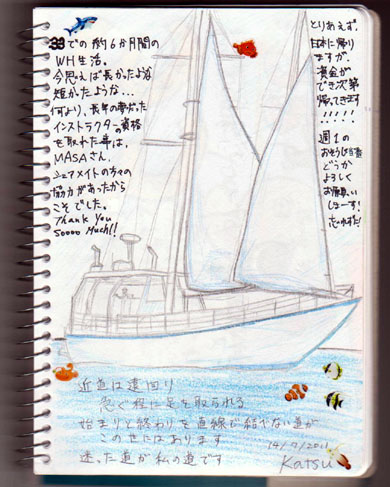 33での約6か月間の
WH生活。
今思えば長かったような
短かったような…
何より、長年の夢だった
インストラクターの資格
を取れた事は、
MASAさん、
シェアメイトの方々の
協力があったから
こそでした。
Thank You
Soooo Much!!
とりあえず、
日本に帰り
ますが、
資金が
でき次第
帰ってきます
!!!!!
週1の
おそうじ当番
どうか
よろしく
お願い
しまーす!
近道は遠回り
急ぐ程に足を取られる
始まりと終わりを直線で結べない道が
この世にはあります
迷った道が私の道です
14/9/2011
Katsu